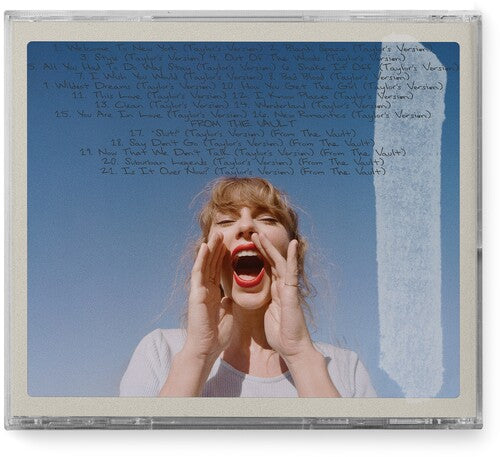 1. Welcome To New York (Taylor's Version) 2. Blank Space (Taylor's Version)
3. Style (Taylor's Version) 4. Out Of The Woods (Taylor's Version)
5. All You Had To Do Was Stay (Taylor's Version) 6. Shake It Off (Taylor's Version)
7. I Wish You Would (Taylor's Version) 8. Bad Blood (Taylor's Version)
9. Wildest Dreams (Taylor's Version) 10. How You Get The Girl (Taylor's Version)
11. This Love (Taylor's Version) 12. I Know Places (Taylor's Version)
13. Clean (Taylor's Version) 14. Wonderland (Taylor's Version)
15. You Are In Love (Taylor's Version) 16. New Romantics (Taylor's Version)
FROM THE VAULT
17. "Slut!" (Taylor's Version) (From The Vault)
18. Say Don't Go (Taylor's Version) (From The Vault)
19. Now That We Don't Talk (Taylor's Version) (From The Vault)
20. Suburban Legends (Taylor's Version) (From The Vault)
21. Is It Over Now? (Taylor's Version) (From The Vault)